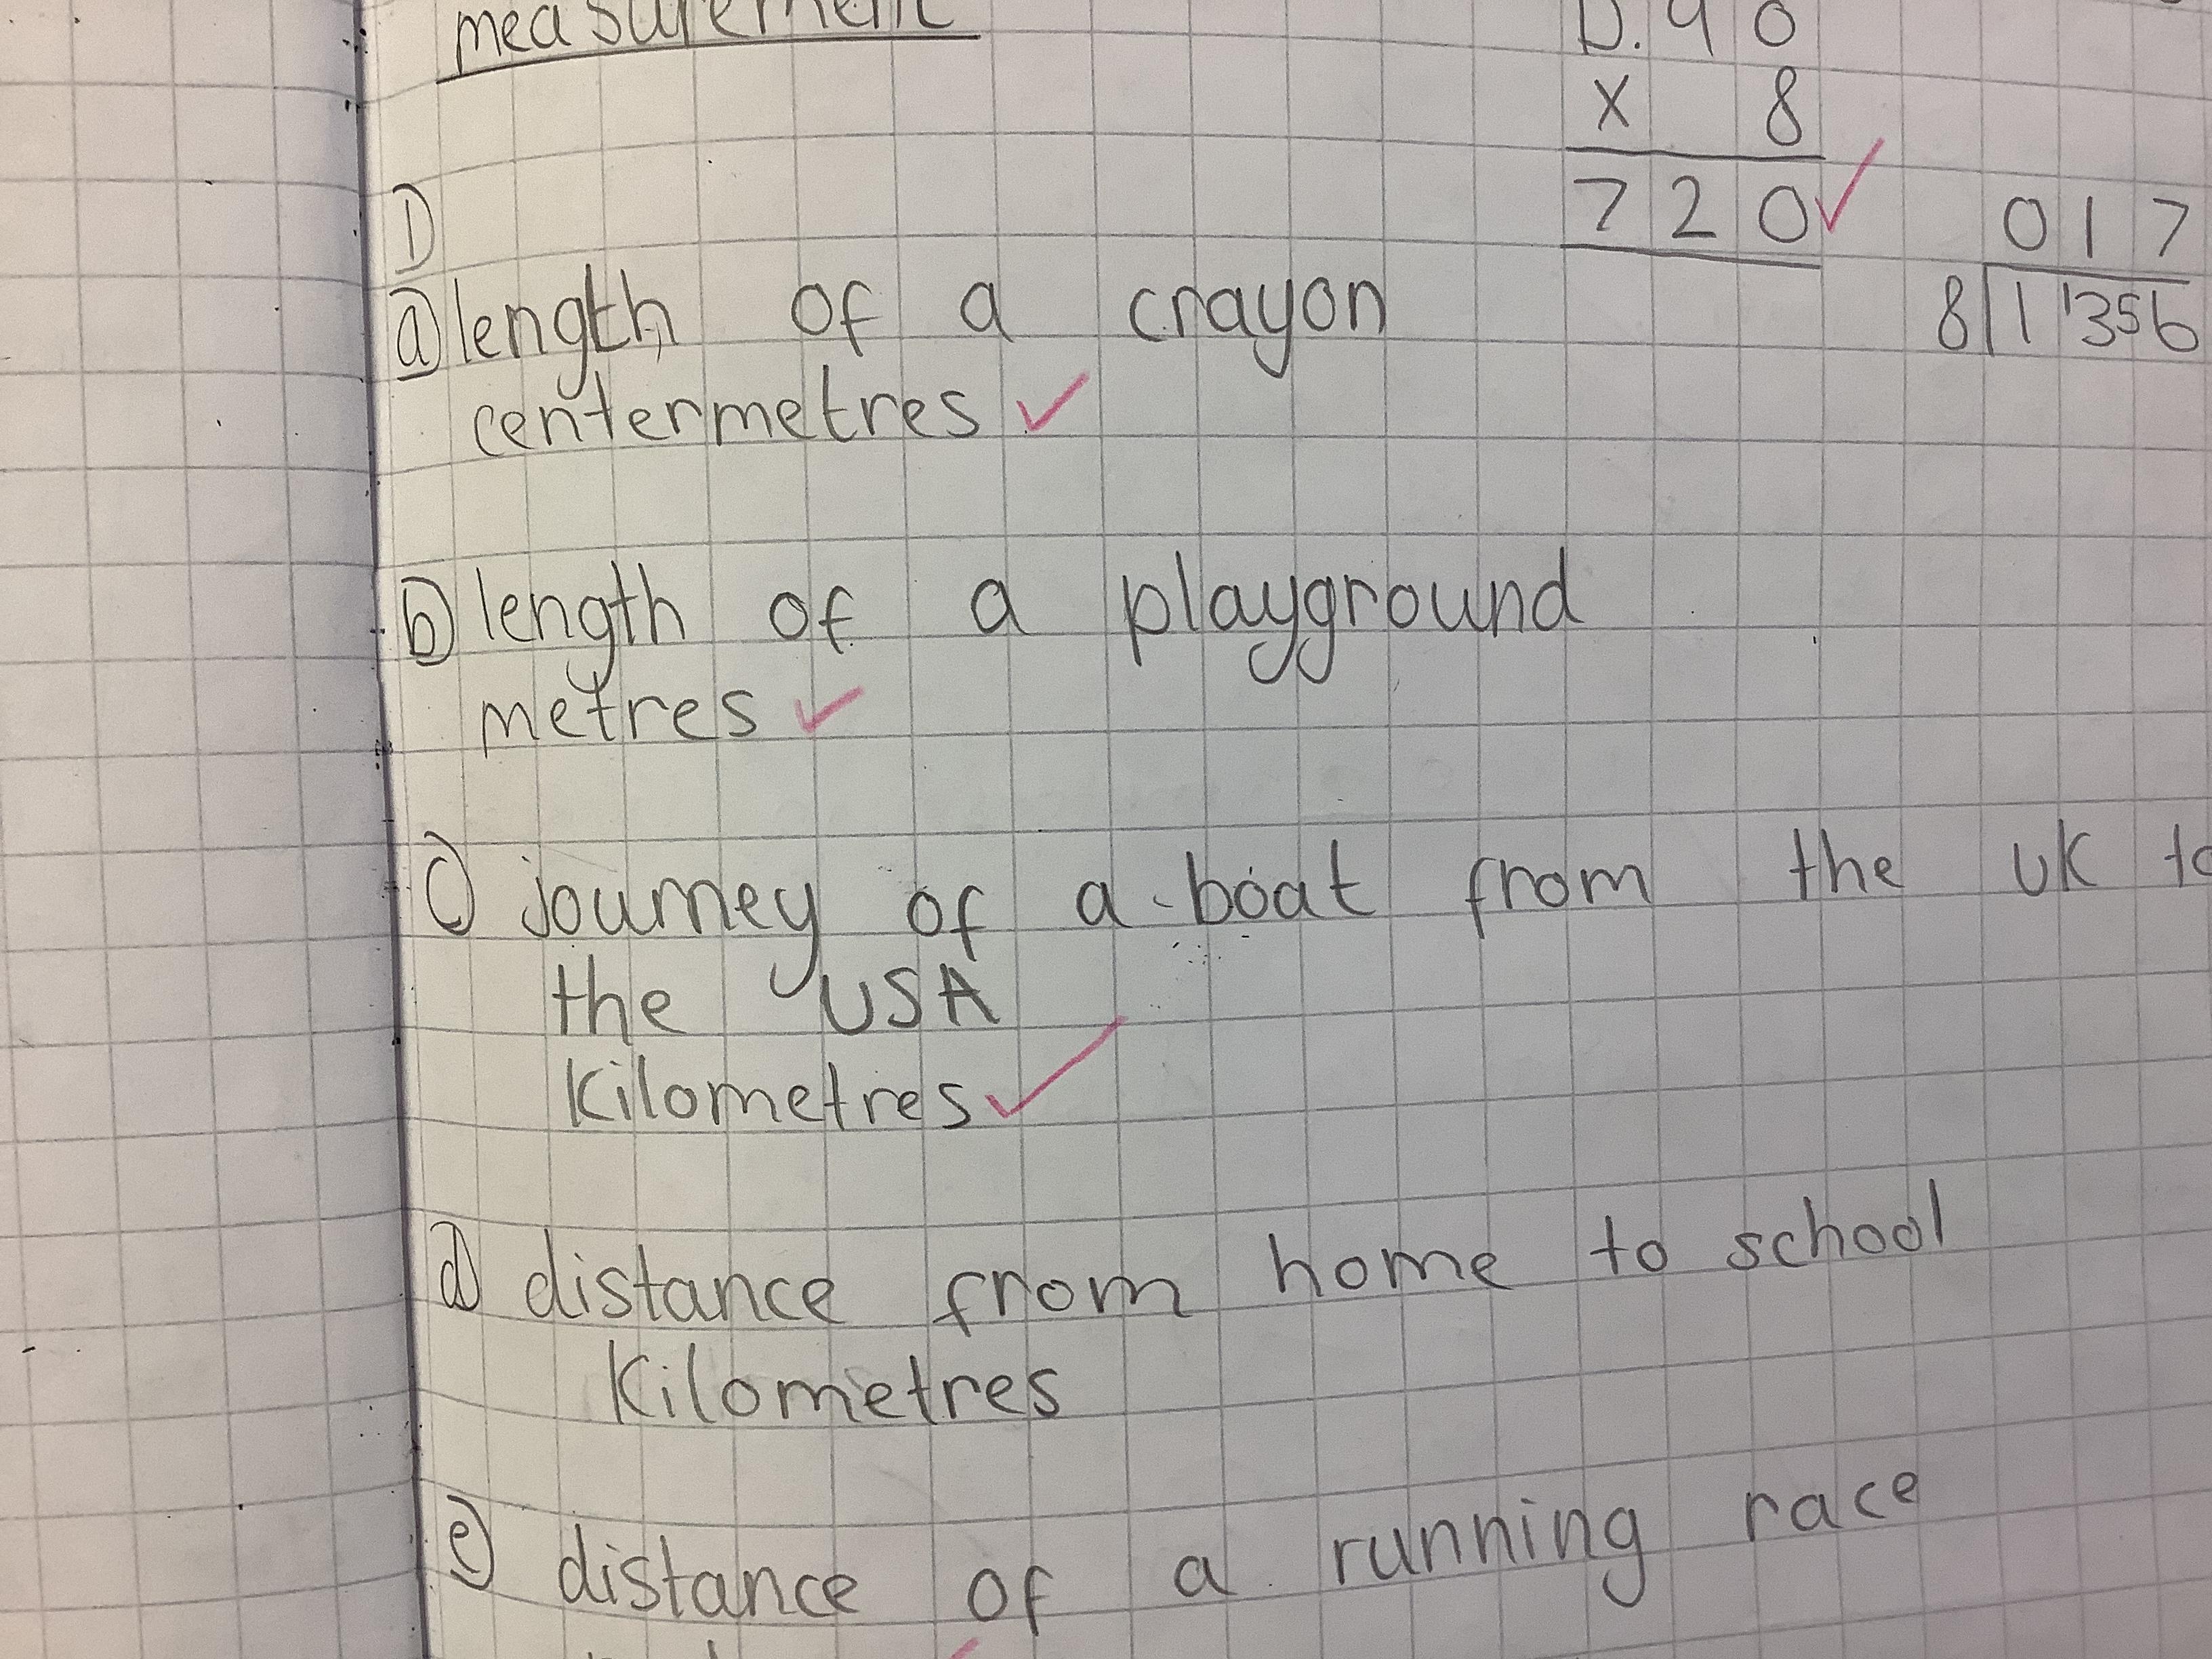 measurement
D. 90
x 8
720
017
8 1 1356
1)
a) length of a crayon
centermetres
b) length of a playground
metres
c) journey of a boat from the uk to
the USA
Kilometres
d) distance from home to school
Kilometres
e) distance of a running race